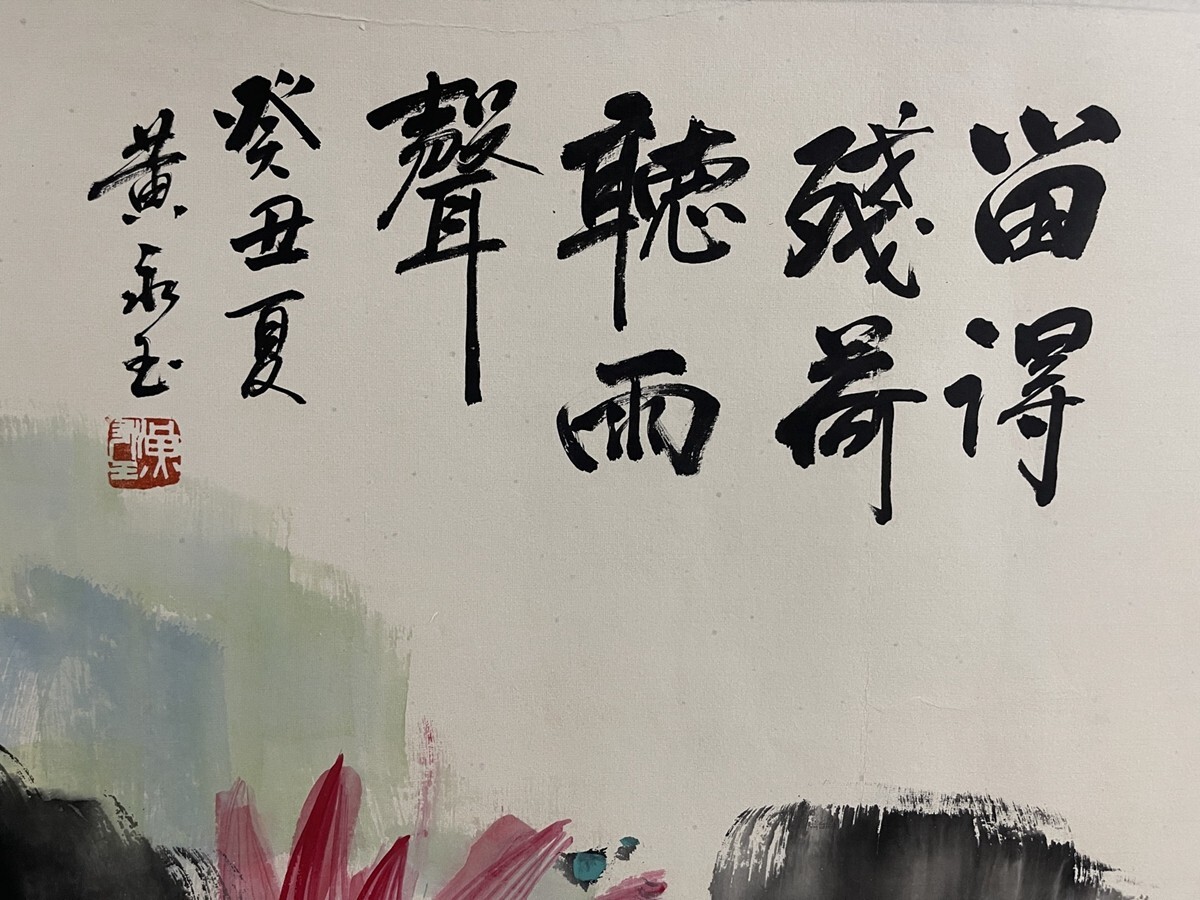 留得
殘荷
聽雨
聲
癸丑夏
黄永玉